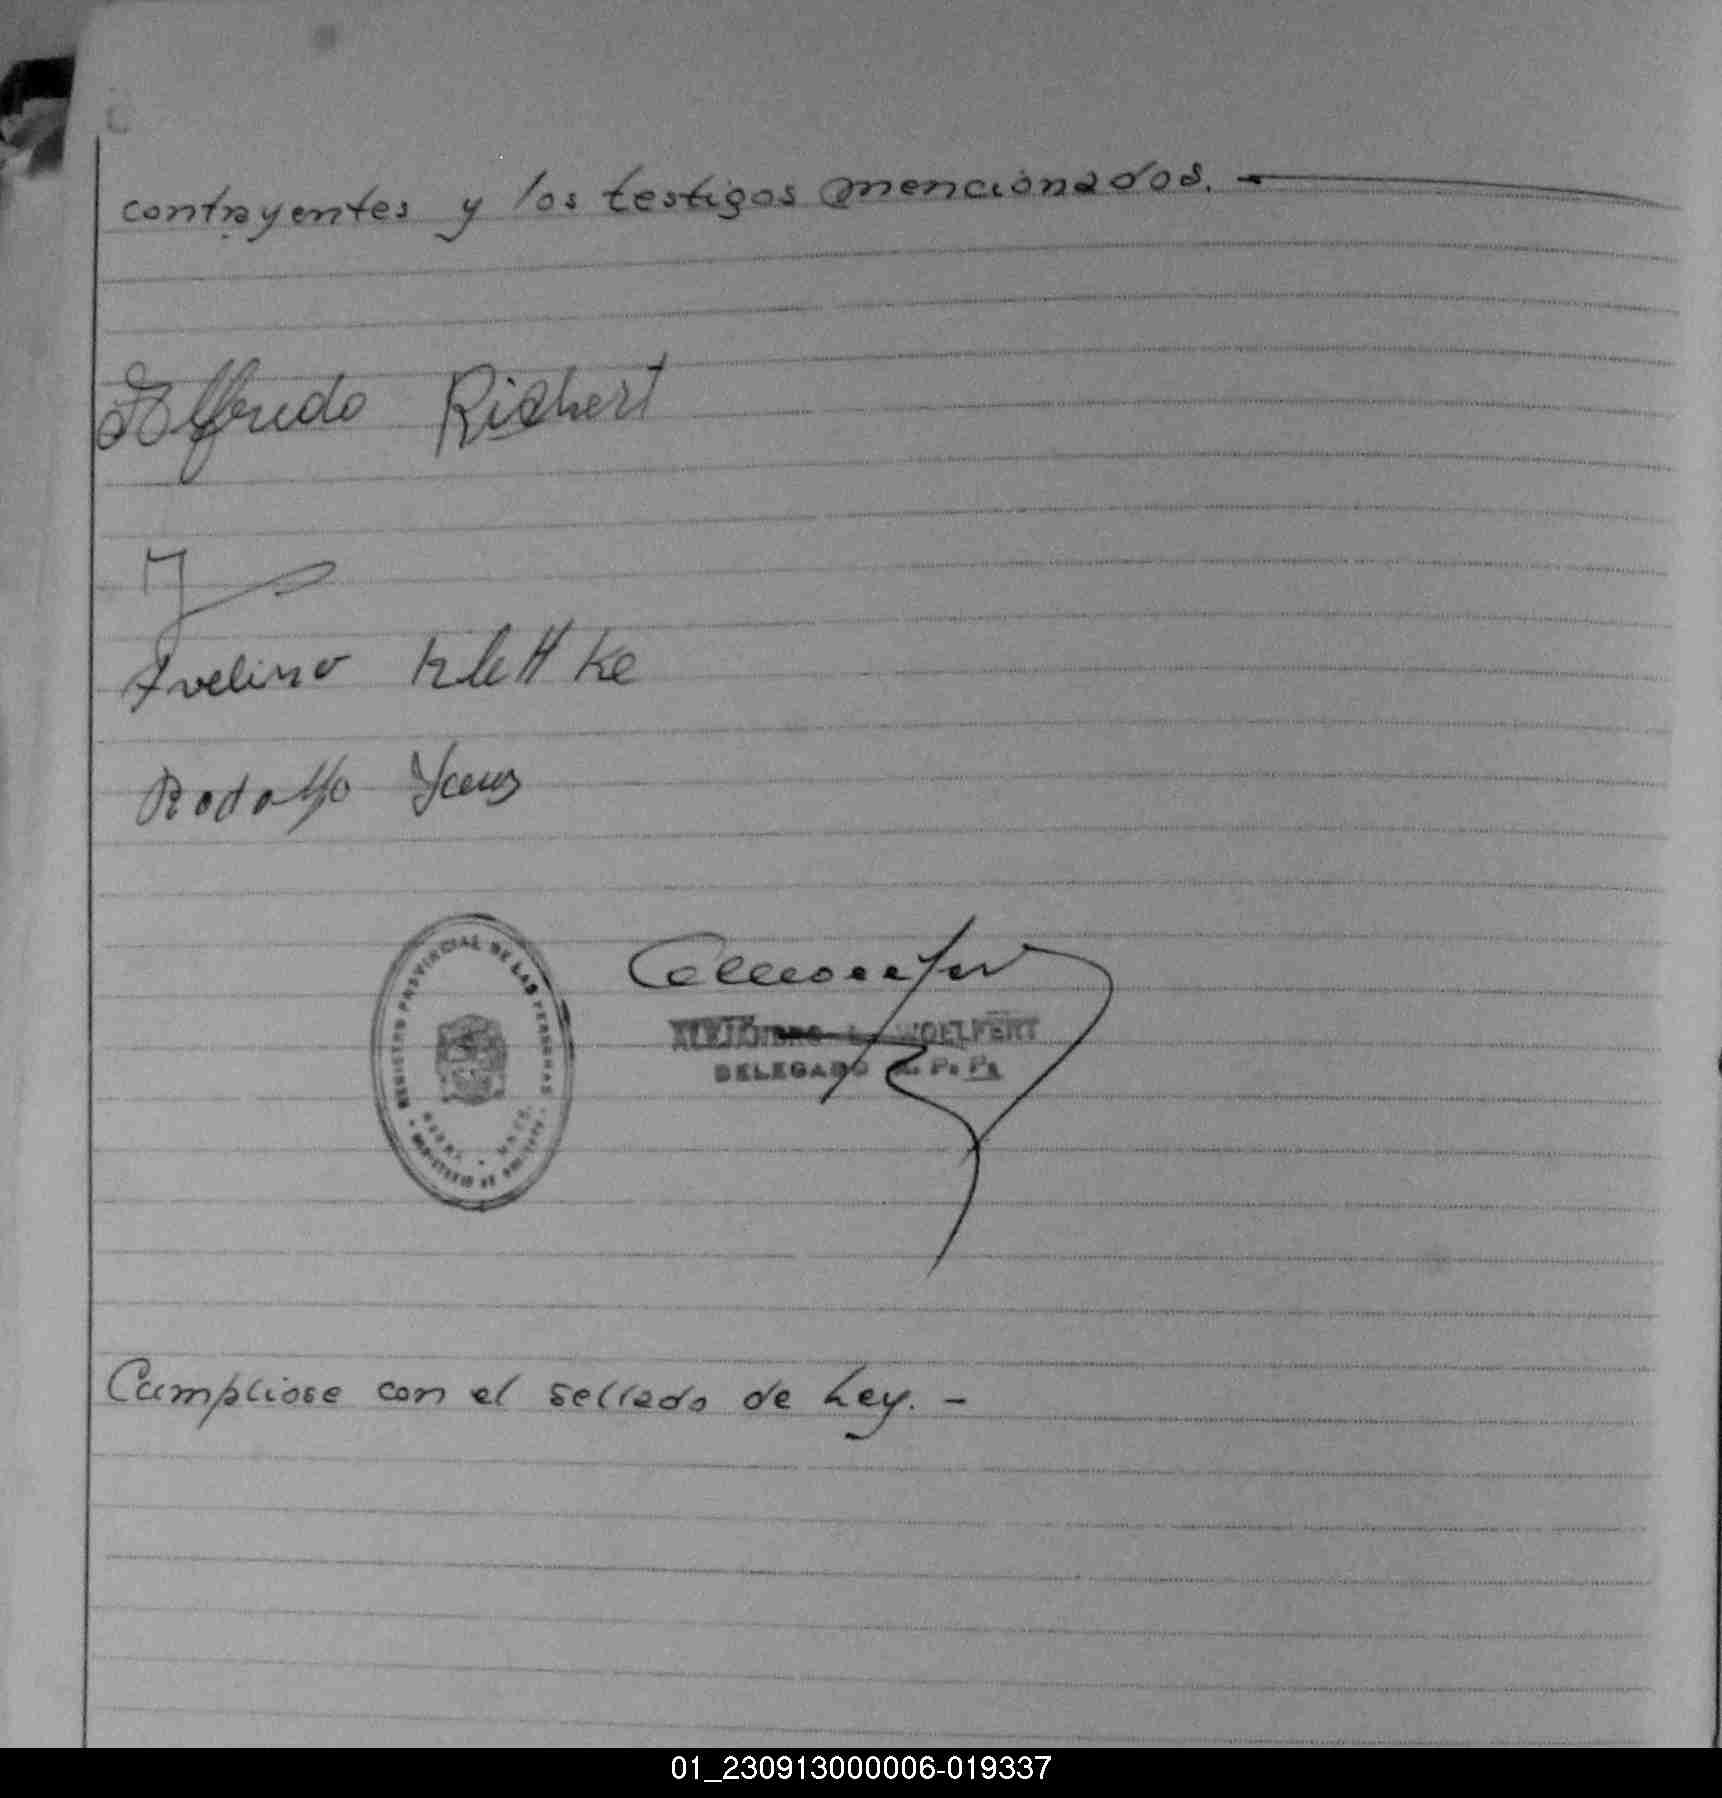 contrayentes y los testigos mencionados. —
Alfredo Richert
Avelino Klettke
Rodolfo
REGISTRO PROVINCIAL DE LAS PERSONAS
WOELFERT
DELEGADO R. P. P.
Cumpliose con el sellado de Ley. –
01_230913000006-019337